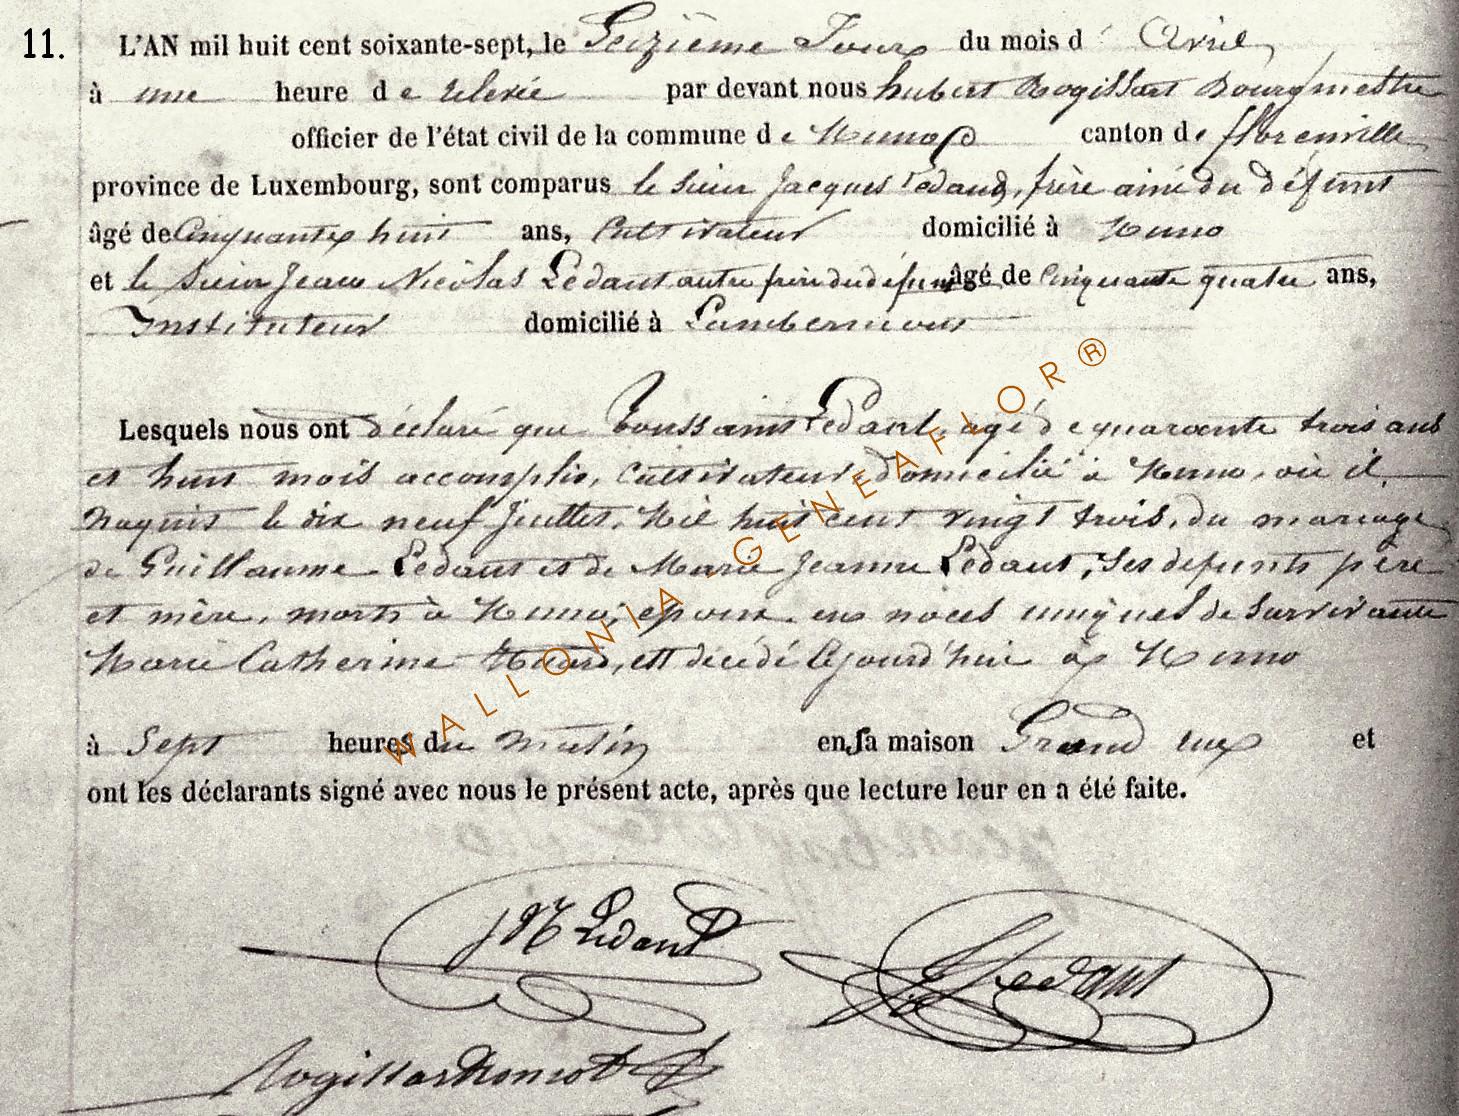 11.
L'AN mil huit cent soixante-sept, le Seizième Jour du mois d' Avril
à une heure de relevée par devant nous hubert Rogissart Bourgmestre
officier de l'état civil de la commune de Muno canton de florenville
province de Luxembourg, sont comparus le sieur Jacques Ledant, frère ainé du défunt
âgé de Cinquante huit ans, Cultivateur domicilié à Muno
et le sieur Jean Nicolas Ledant autre frère du défunt âgé de Cinquante quatre ans,
Instituteur domicilié à Lambermont
Lesquels nous ont déclaré que Toussaint Ledant, agé de quarante trois ans
et huit mois accomplis, Cultivateur, domicilié à Muno, où il
naquit le dix neuf Juillet, Mil huit cent vingt trois, du mariage
de Guillaume Ledant et de Marie Jeanne Ledant, ses defunts père
et mère, morts à Muno, epoux en noces uniques de survivante
Marie Catherine, est décédé cejourd'hui à Muno
à Sept heures du matin en sa maison Grand rue et
ont les déclarants signé avec nous le présent acte, après que lecture leur en a été faite.
WALLONIA - GENEAFLOR®
JN Ledant
J Ledant
Rogissart